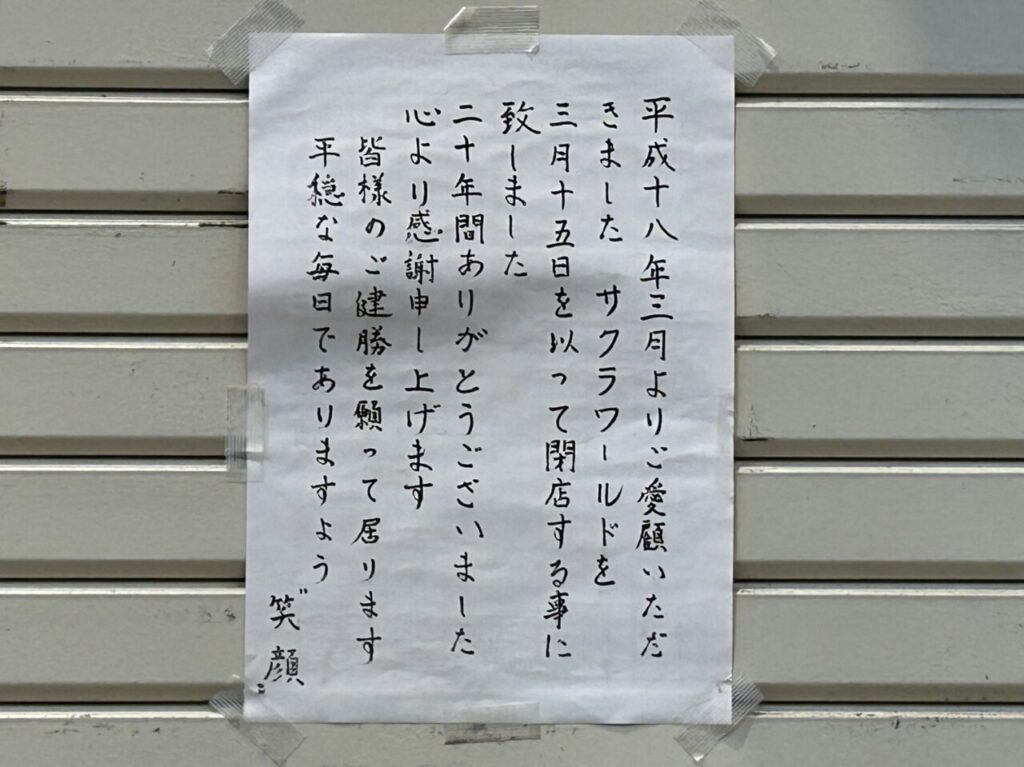 平成十八年三月よりご愛顧いただ
きました　サクラワールドを
三月十五日を以って閉店する事に
致しました
二十年間ありがとうございました
心より感謝申し上げます
皆様のご健勝を願って居ります
平穏な毎日でありますよう
〝笑顔〟